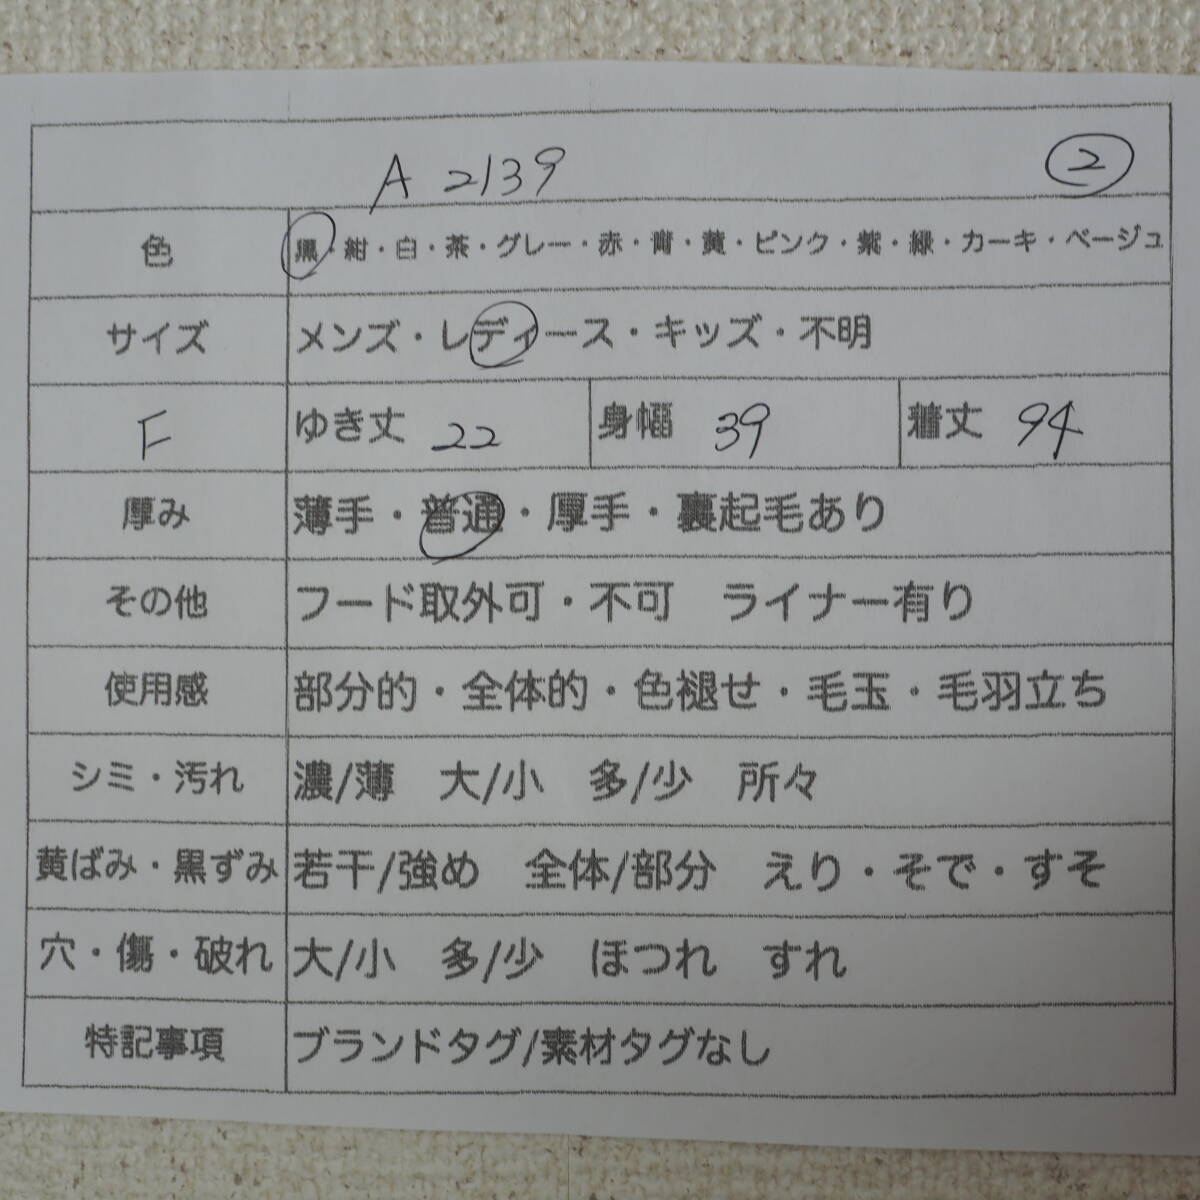 A 2139 ②
色 黒・紺・白・茶・グレー・赤・青・黄・ピンク・紫・緑・カーキ・ベージュ
サイズ メンズ・レディース・キッズ・不明
F ゆき丈 22 身幅 39 着丈 94
厚み 薄手・普通・厚手・裏起毛あり
その他 フード取外可・不可 ライナー有り
使用感 部分的・全体的・色褪せ・毛玉・毛羽立ち
シミ・汚れ 濃/薄 大/小 多/少 所々
黄ばみ・黒ずみ 若干/強め 全体/部分 えり・そで・すそ
穴・傷・破れ 大/小 多/少 ほつれ すれ
特記事項 ブランドタグ/素材タグなし